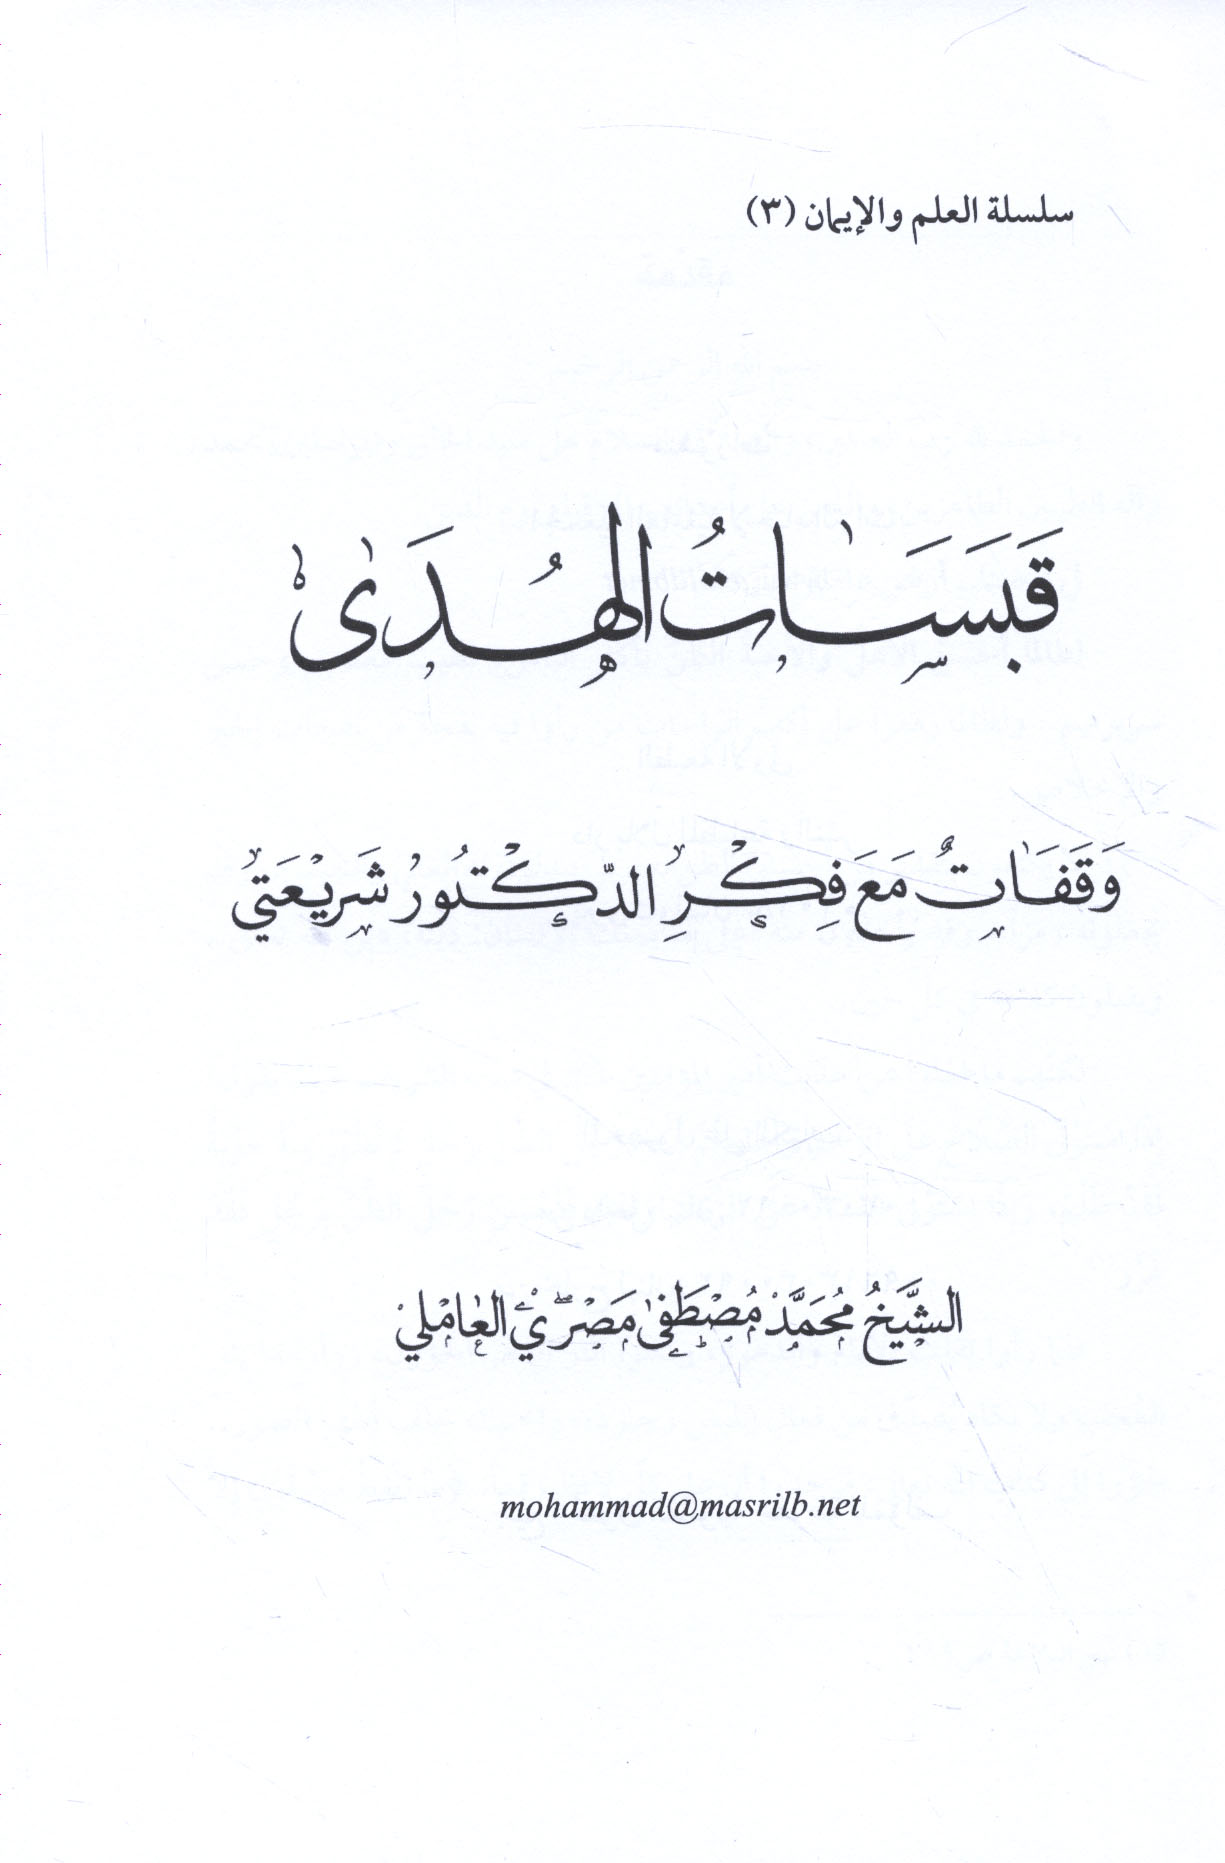 سلسلة العلم والإيمان (٣)
قَبَسَاتُ الهُدَى
وَقَفَاتٌ مَعَ فِكْرِ الدّكْتُورْ شَرِيْعَتِي
الشَّيْخُ مُحَمَّدْ مُصْطَفَى مَصْرِيْ العَامْلِيْ
mohammad@masrilb.net